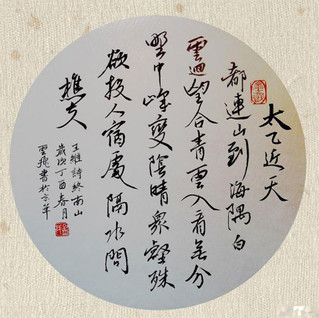 太乙近天
都連山到海隅白
雲迴望合青雲入看無分
野中峰變陰晴眾壑殊
欲投人宿處隔水問
樵夫
王維詩終南山
歲次丁酉春月
雲飛書於京華